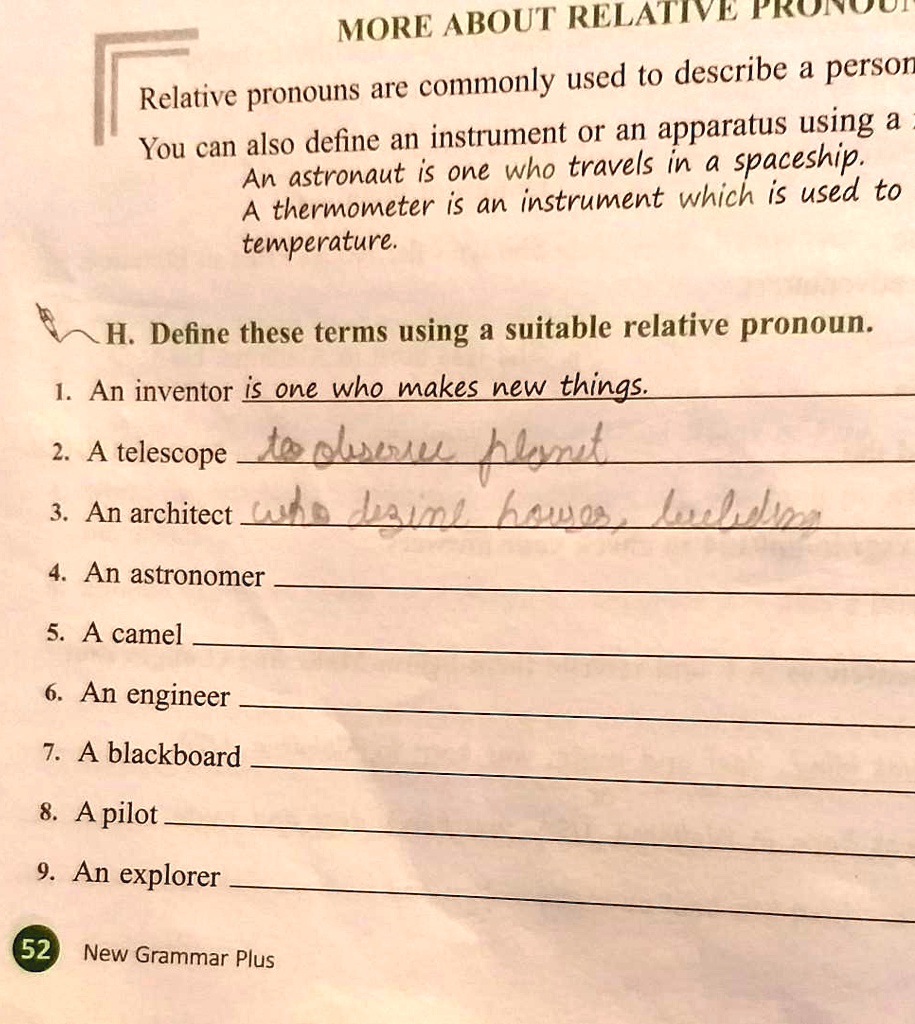 MORE ABOUT RELATIVE PRONOUN
Relative pronouns are commonly used to describe a person
You can also define an instrument or an apparatus using a
An astronaut is one who travels in a spaceship.
A thermometer is an instrument which is used to
temperature.
H. Define these terms using a suitable relative pronoun.
1. An inventor is one who makes new things.
2. A telescope to observe planet
3. An architect who desine houses,
4. An astronomer
5. A camel
6. An engineer
7. A blackboard
8. A pilot
9. An explorer
52 New Grammar Plus